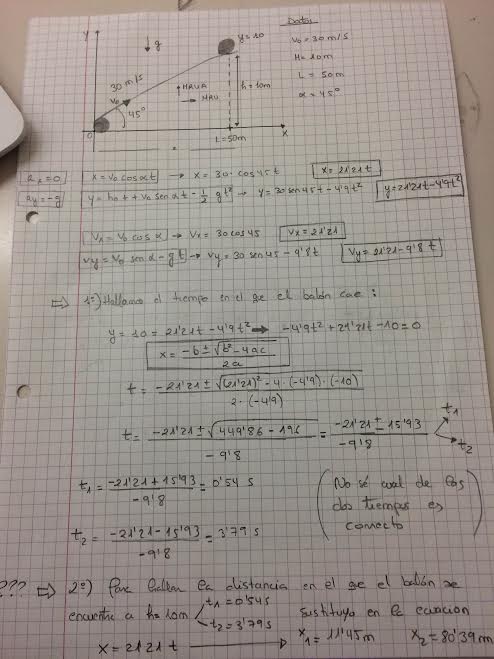 Datos
y
↓g
y=10
v₀ = 30 m/s
H = 10m
L = 50m
α = 45°
30 m/s
v₀
45°
↑ MRUA
→ MRU
h = 10m
0
L = 50m
x
ax = 0
x = v₀ cos α t → x = 30 · cos 45 t
x = 21'21 t
ay = -g
y = h₀ + v₀ sen α t - 1/2 g t² → y = 30 sen 45 t - 4'9 t²
y = 21'21 t - 4'9 t²
Vx = V₀ cos α → Vx = 30 cos 45
Vx = 21'21
Vy = V₀ sen α - g t → Vy = 30 sen 45 - 9'8 t
Vy = 21'21 - 9'8 t
⇒ 1º) Hallamos el tiempo en el qe el balón cae :
y = 10 = 21'21 t - 4'9 t² → -4'9 t² + 21'21 t - 10 = 0
x = (-b ± √(b² - 4ac)) / 2a
t = (-21'21 ± √((21'21)² - 4 · (-4'9) · (-10))) / 2 · (-4'9)
t = (-21'21 ± √(449'86 - 196)) / -9'8 = (-21'21 ± 15'93) / -9'8
t₁
t₂
t₁ = (-21'21 + 15'93) / -9'8 = 0'54 s
(No sé cual de los
dos tiempos es
correcto)
t₂ = (-21'21 - 15'93) / -9'8 = 3'79 s
??? ⇒ 2º) Para hallar la distancia en el qe el balón se
encuentre a h=10m
t₁ = 0'54 s
t₂ = 3'79 s
sustituyo en la ecuacion
x = 21'21 t → x₁ = 11'45 m x₂ = 80'39 m